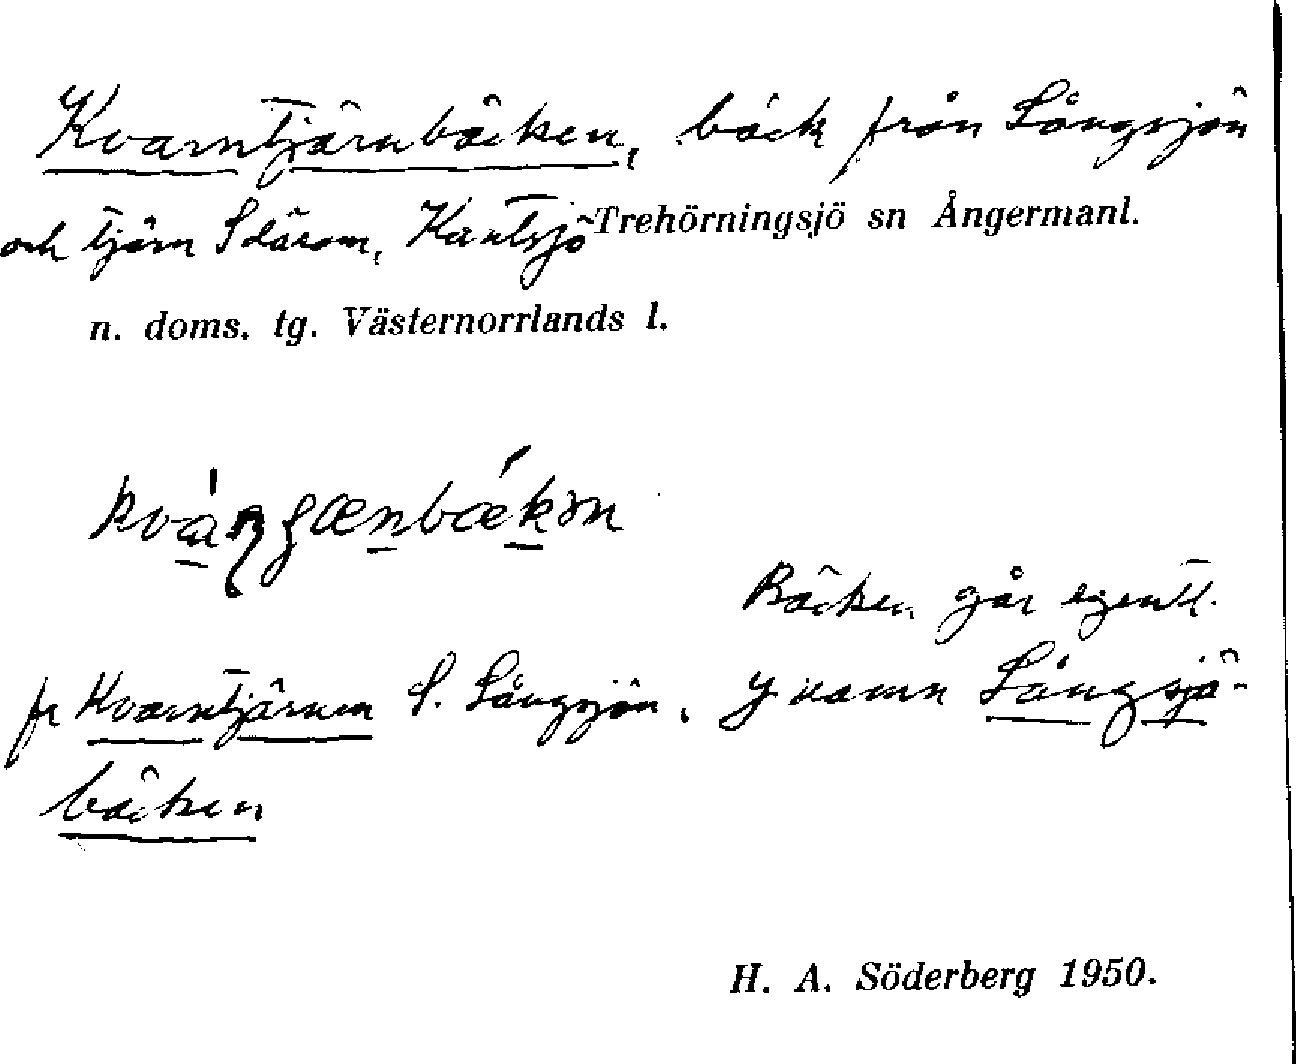 Kvarntjärnbäcken, bäck från Långsjön
och tjärn S därom, Kantsjö Trehörningsjö sn Ångermanl.
n. doms. tg. Västernorrlands l.
Bäcken går egentl.
fr Kvarntjärnen S. Långsjön. Y namn Långsjö-
bäcken
H. A. Söderberg 1950.